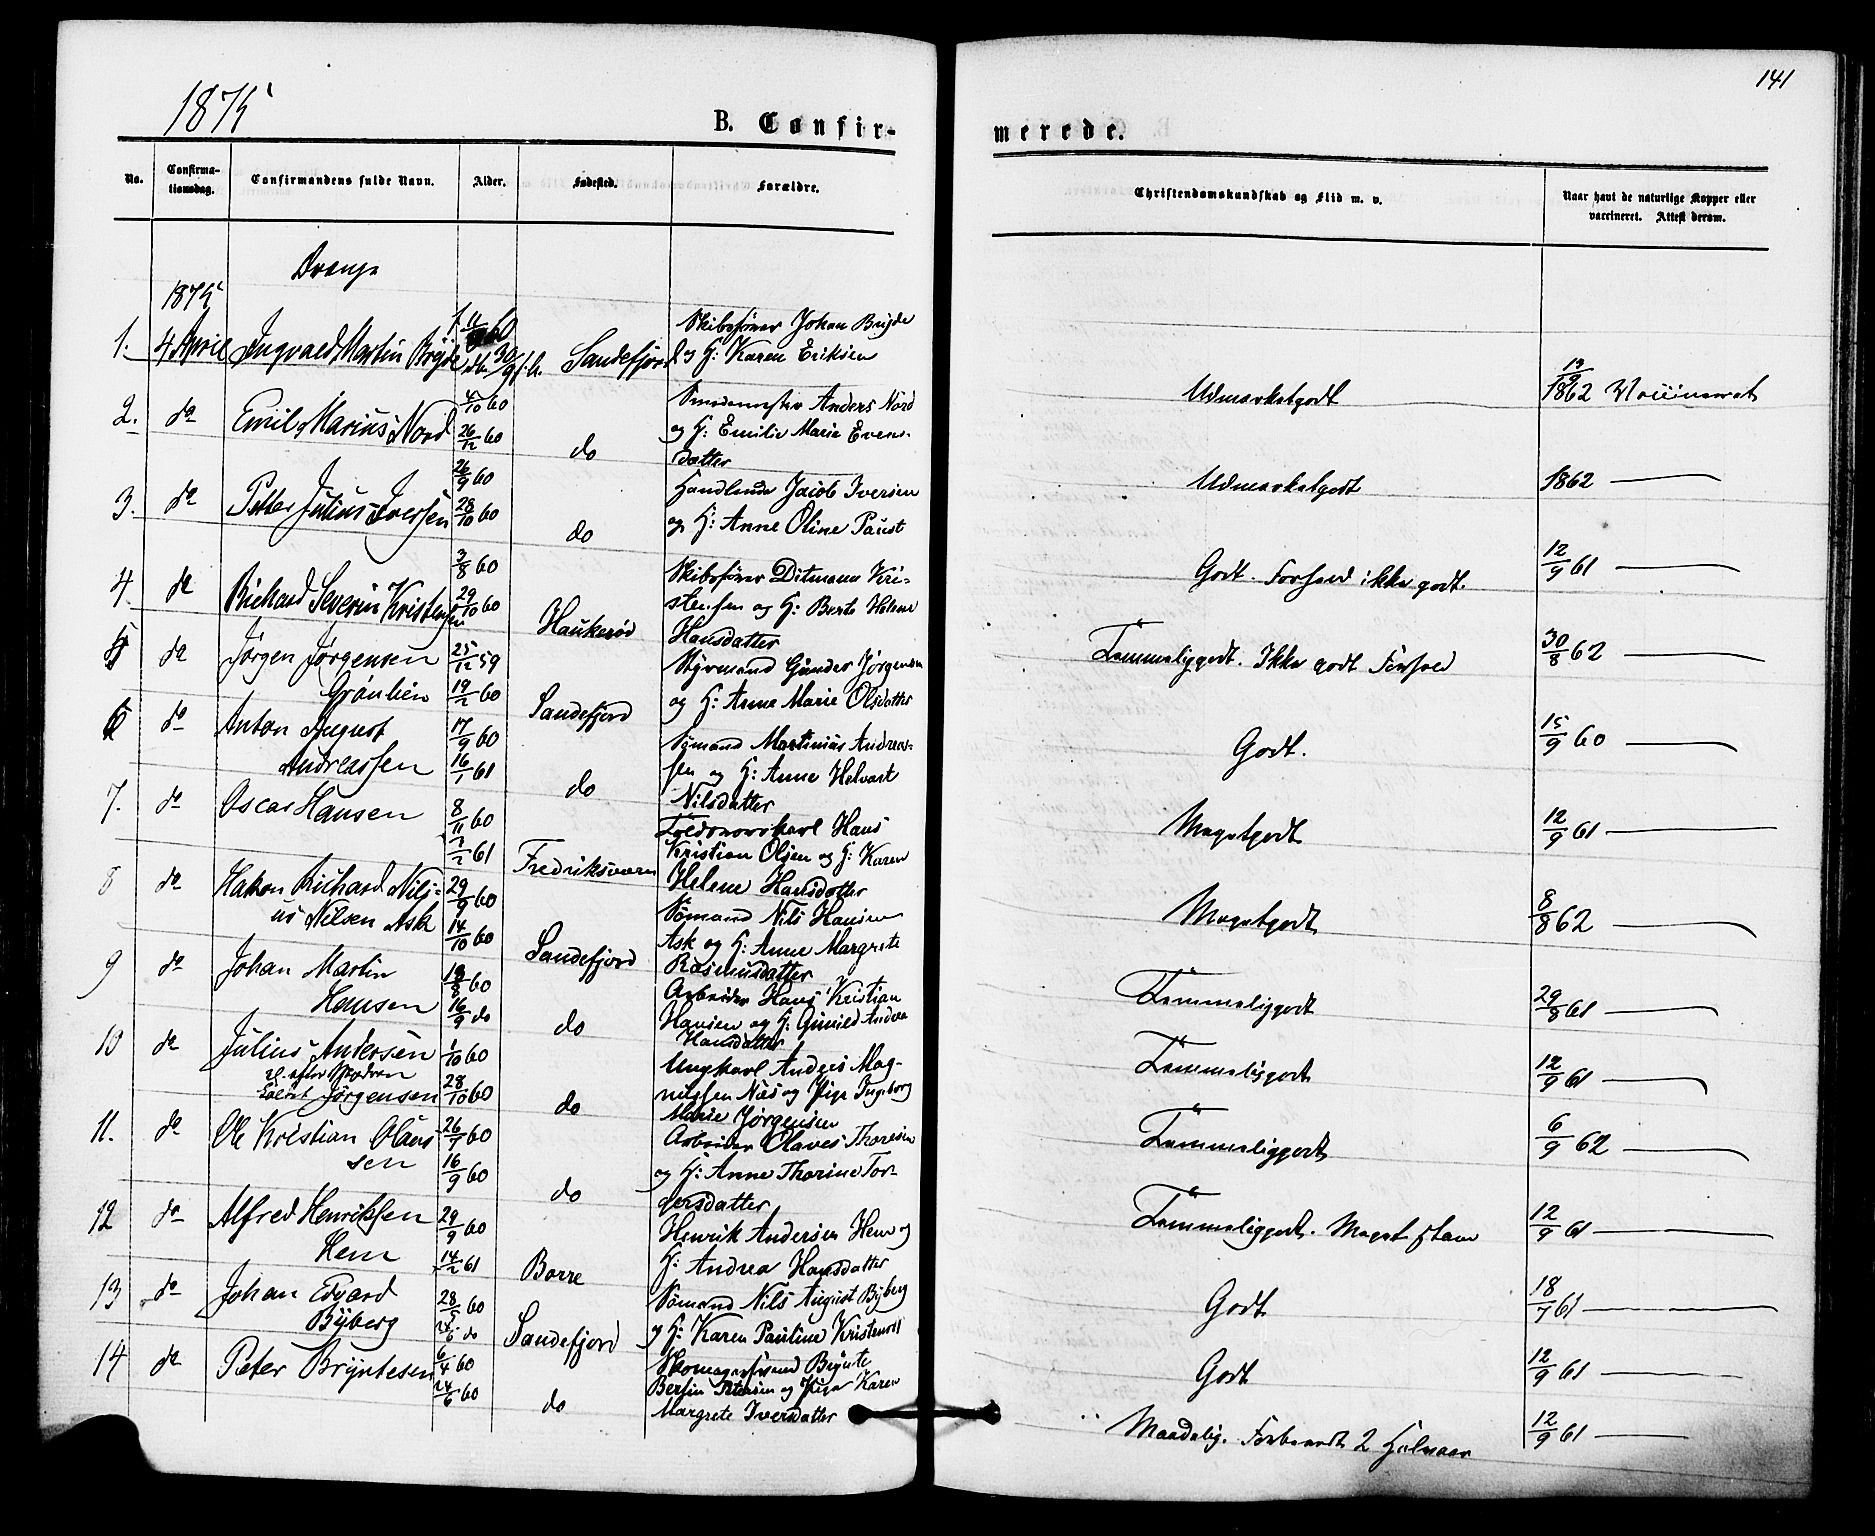 141
1875
B. Confir-
merede.
No.
Confirma-
tionsdag.
Confirmandens fulde Navn.
Alder.
Fødested.
Forældre.
Christendomskundskab og Flid m. v.
Naar havt de naturlige Kopper eller
vaccineret. Attest derom.
Drenge
1875
1. 4 April Ingvald Martin Bryde
f 60
db. 30/9 Sandefjord
Skibsfører Johan Bryde
og H: Karen Eriksen
Udmærketgodt
1862 Vaccineret
2. do Emil Marius Nord
4/10 60
26/12 60
do
Smedemester Anders Nord
og H: Emilie Marie Evens-
datter
Udmærketgodt
1862
3. do Petter Julius Iversen
26/9 60
28/10 60
do
Handlende Jacob Iversen
og H: Anne Oline Paust
Godt. Forhold ikke godt.
12/9 61
4. do Richard Severin Kristensen
3/8 60
29/10 60
Haukerød
Skibsfører Ditmann Kri-
stensen og H: Berte Helene
Hansdatter
Temmeliggodt. Ikke godt Forhold
30/8 62
5 do Jørgen Jørgensen
Grønlien
25/12 59
19/2 60
Sandefjord
Styrmand Gunder Jørgensen
og H: Anne Marie Olsdatter
Godt.
15/9 60
6 do Anton August
Andreassen
17/9 60
16/1 61
do
Sømand Martinius Andrea-
sen og H: Anne Helvart
Nilsdatter
Megetgodt
12/9 61
7. do Oscar Hansen
8/11 60
7/2 61
Fredriksværn
Toldroerskarl Hans
Kristian Olsen og H: Karen
Helene Hansdatter
Megetgodt
8/8 62
8 do Hakon Richard Nilj-
us Nilsen Ask
29/9 60
14/10 60
Sandefjord
Sømand Nils Hansen
Ask og H: Anne Margrete
Rasmusdatter
Temmeliggodt
29/8 61
9 do Johan Martin
Hansen
60
16/9 do
do
Arbeider Hans Kristian
Hansen og H: Gunild Andrea
Hansdatter
Temmeliggodt
12/9 61
10 do Julius Andersen
Jørgensen
1/10 60
28/10 60
do
Ungkarl Anders Mag-
nussen Næs og Pige Ingeborg
Marie Jørgensen
Temmeliggodt
6/9 62
11. do Ole Kristian Olaves
sen
26/7 60
16/9 60
do
Arbeider Olaves Thoresen
og H: Anne Thorine Tor-
gersdatter
Temmeliggodt. Meget stam
12/9 61
12 do Alfred Henriksen
Hem
29/9 60
14/2 61
Borre
Henrik Andersen Hem og
H: Andrea Hansdatter
Godt
18/7 61
13 do Johan Edvard
Byberg
28/5 60
24/6 do
Sandefjord
Sømand Nils August Byberg
og H: Karen Pauline Kristensd
Godt
12/9 61
14 do Peter Bryntesen
6/4 60
24/6 60
do
Skomagersvend Brynte
Bersin Petersen og Pige Karen
Margrete Iversdatter
Maadelig. Forberedt 2 Halvaar
12/9 61